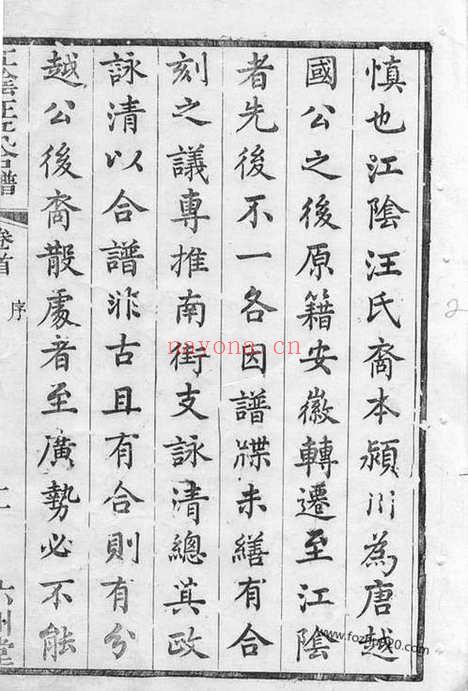 慎也江陰汪氏裔本潁川為唐越
國公之後原籍安徽轉遷至江陰
者先後不一各因譜牒未繕有合
刻之議專推南街支詠清總其政
詠清以合譜非古且有合則有分
越公後裔散處者至廣勢必不能
江陰汪氏合譜
卷首
序
六州堂
nayong.cn